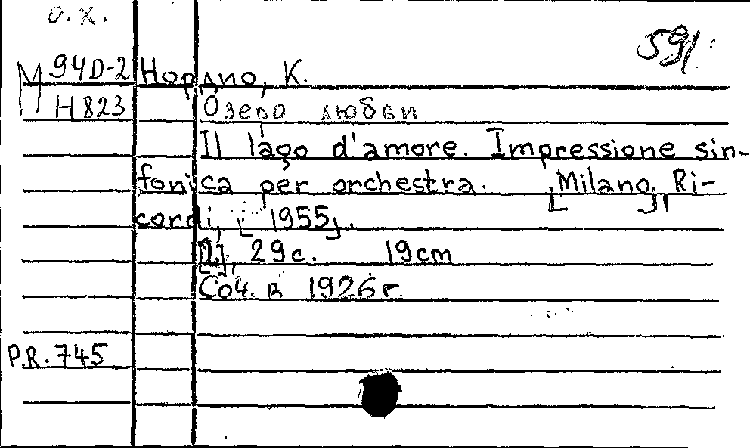 О.Х.
591.
М 94D-2 Нордио, К.
Н823 Озеро любви
Il lago d'amore. Impressione sin-
fonica per orchestra. [Milano], Ri-
cordi, [1955].
[2], 29с. 19cm
Соч. в 1926г.
P.R. 745